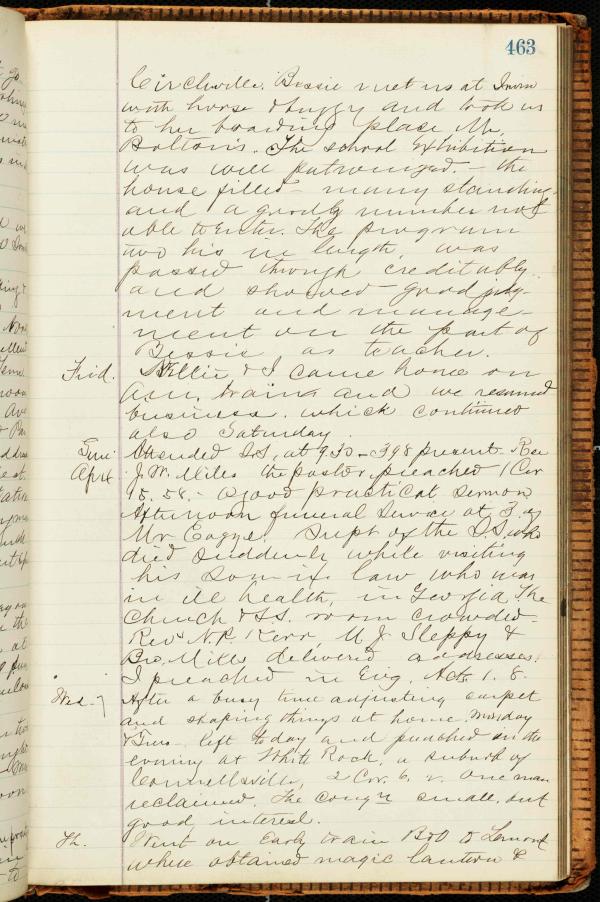 463
Circlville. Bessie met us at Irwin
with horse & buggy and took us
to her boarding place Mr.
Bolton's. The school Exhibition
was well patronized. – the
house filled – many standing
and a goodly number not
able to Enter. The program
two hrs in length, was
passed through creditably
and showed good judg-
ment and manage-
ment on the part of
Bessie as teacher.
Frid. Willie & I came home on
a.m. train and we resumed
business. which continued
also Saturday.
Sun. Attended S.S. at 9.30 – 398 present. Rev
Apr 4 J. W. Miles the pastor, preached 1 Cor
15. 58. – a good practical sermon
Afternoon funeral service at 3. of
Mr. Supt of the S.S. who
died suddenly while visiting
his son in law, who was
in ill health, in Georgia. The
church & S.S. room crowded.
Revs N. R. Kerr, M. J. Sleppy &
Bro. Miles delivered addresses.
I preached in Evg. Acts 1. 8.
Wed. 7 After a busy time adjusting carpet
and shaping things at home Monday
& Tues – left today and preached in the
evening at White Rock, a suburb of
Connellsville, 2 Cor. 6. 2. One man
reclaimed. The congn small, but
good interest.
Th. Went on Early train B&O to Lemont
where obtained magic lantern &